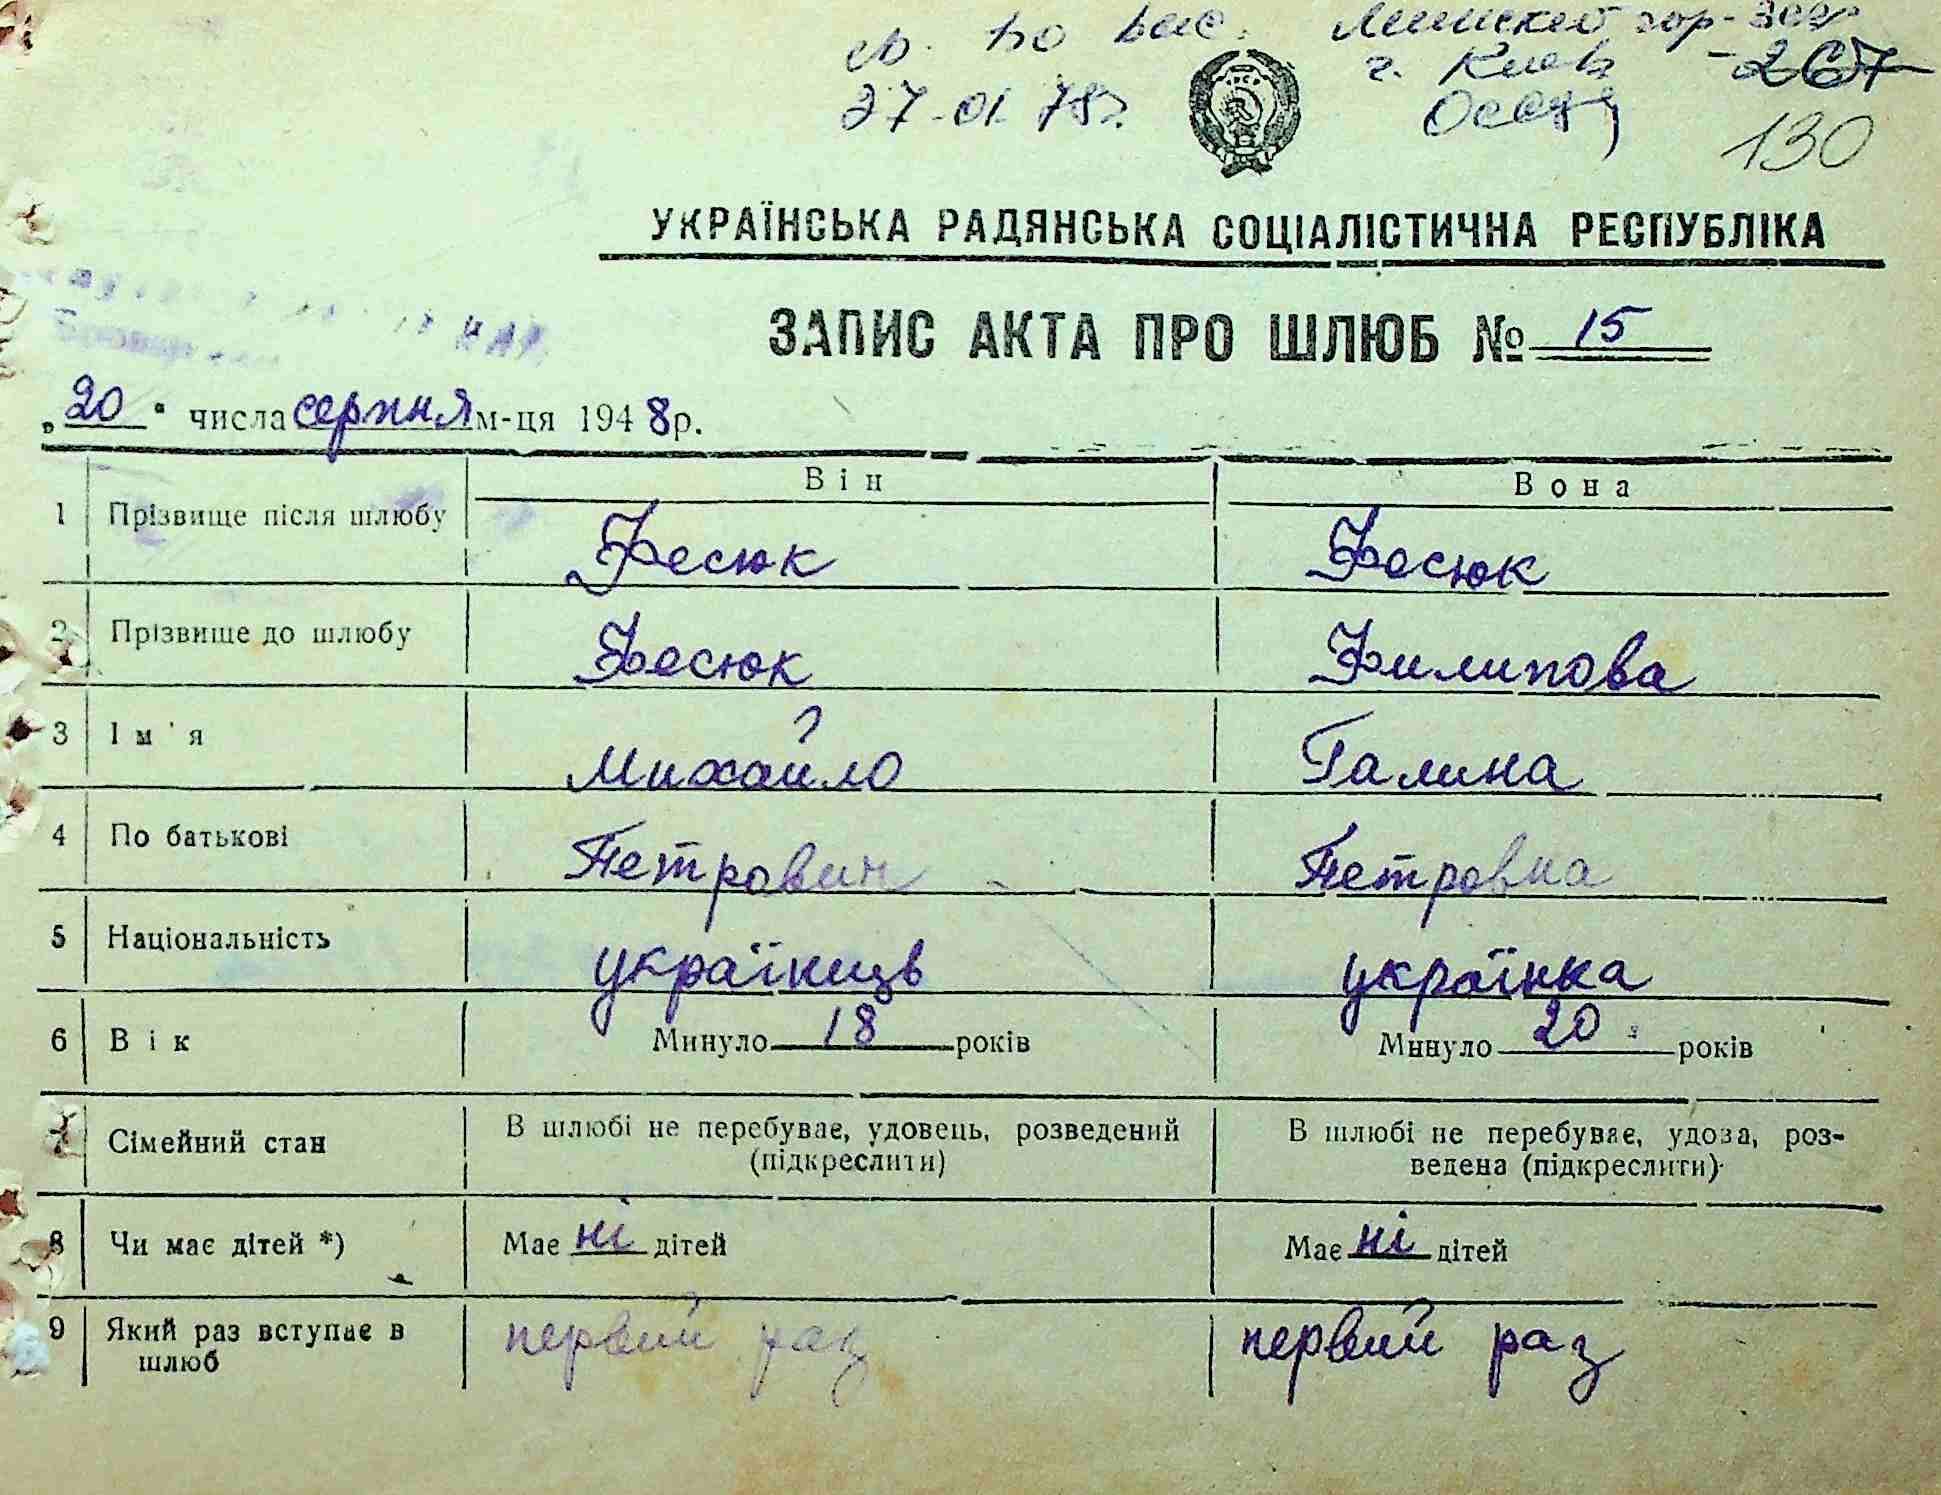 27-01-78г. г. Киев -267
130
УКРАЇНСЬКА РАДЯНСЬКА СОЦІАЛІСТИЧНА РЕСПУБЛІКА
ЗАПИС АКТА ПРО ШЛЮБ № 15
„20“ числа серпня м-ця 1948 р.
Він Вона
1 Прізвище після шлюбу Фесюк Фесюк
2 Прізвище до шлюбу Фесюк Филипова
3 Ім'я Михайло Галина
4 По батькові Петрович Петровна
5 Національність українець українка
6 Вік Минуло 18 років Минуло 20 років
7 Сімейний стан В шлюбі не перебуває, удовець, розведений (підкреслити) В шлюбі не перебуває, удова, роз-
ведена (підкреслити)
8 Чи має дітей *) Має ні дітей Має ні дітей
9 Який раз вступає в первий раз первий раз
шлюб